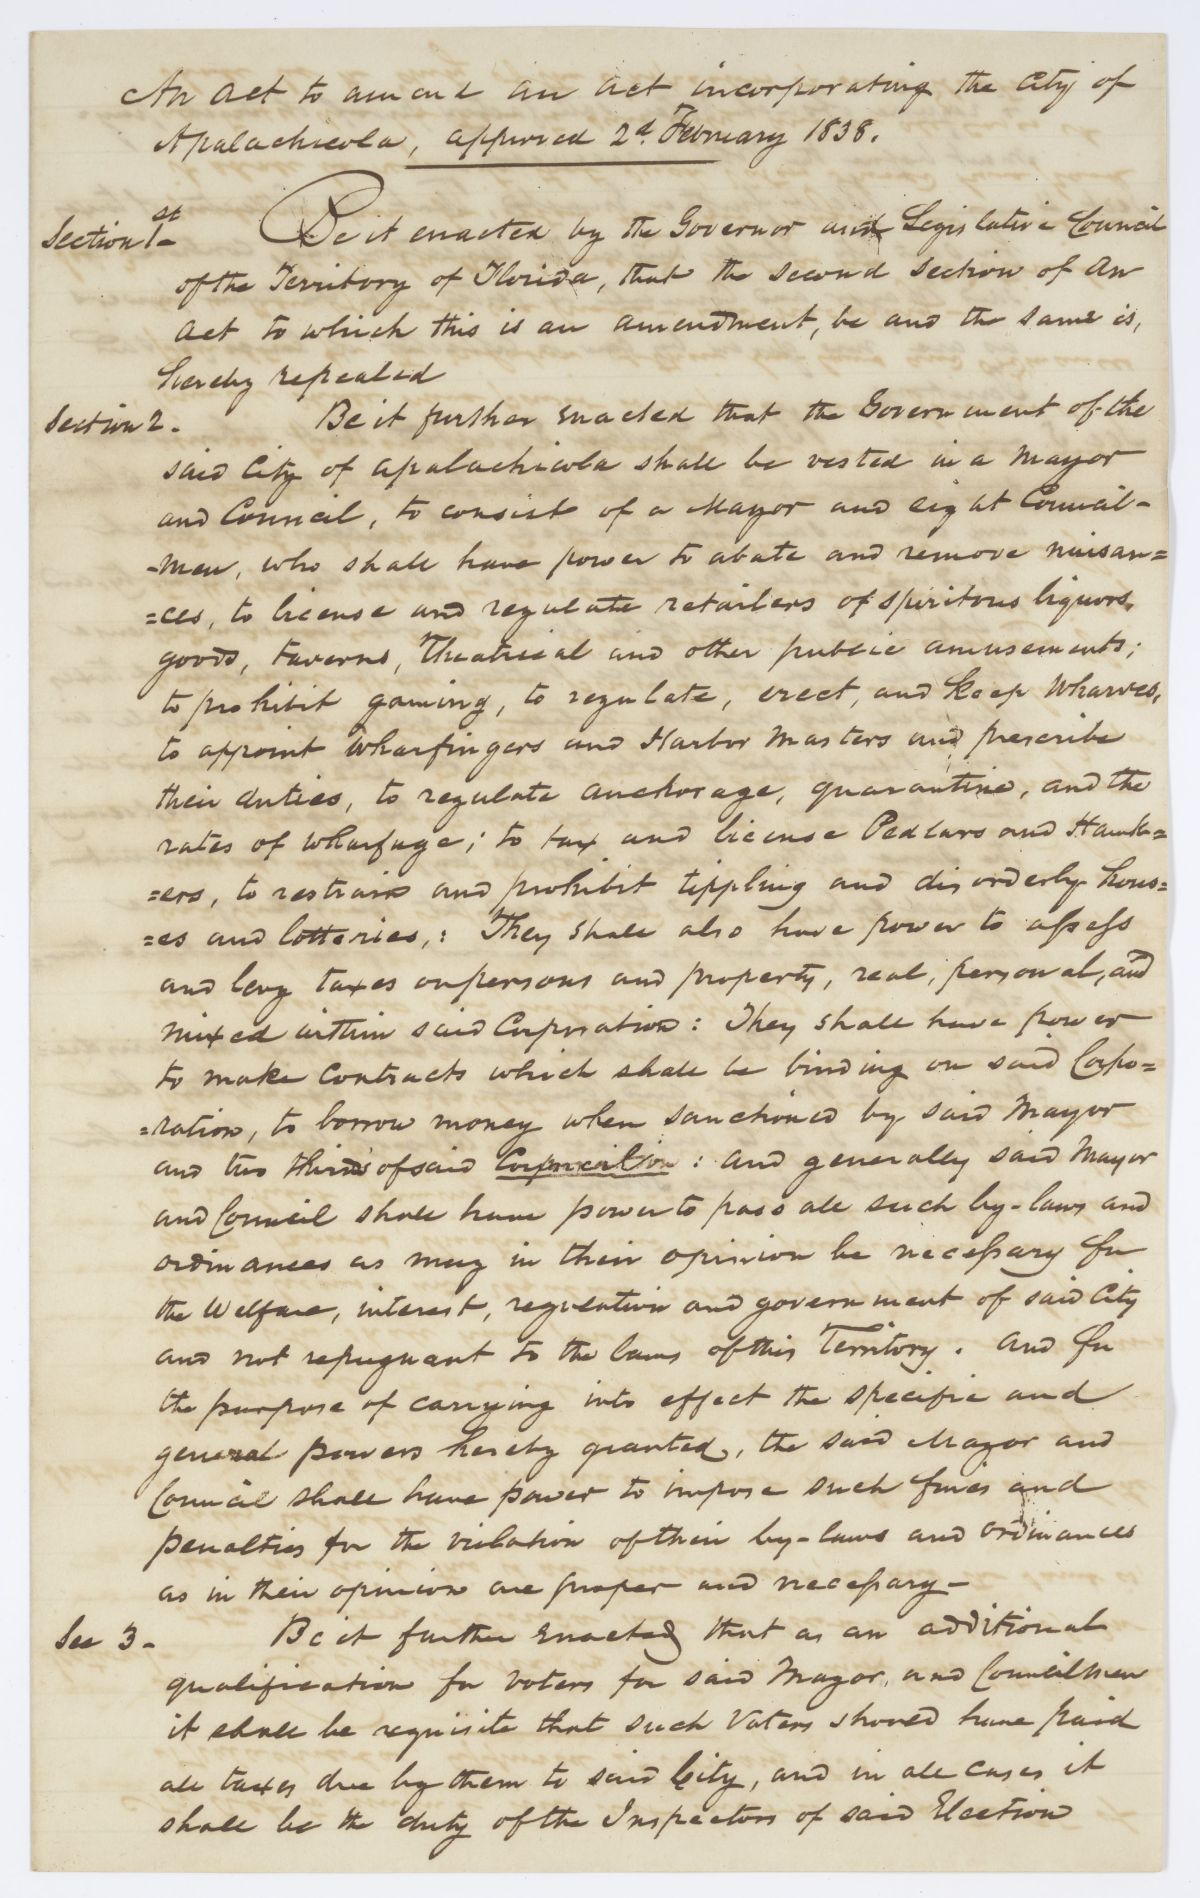 An Act to amend an act incorporating the City of
Apalachicola, approved 2d. February 1838.
Section 1st Be it enacted by the Governor and Legislative Council
of the Territory of Florida, that the second section of An
Act to which this is an amendment, be and the same is,
hereby repealed
Section 2. Be it further enacted that the Government of the
said City of Apalachicola shall be vested in a Mayor
and Council, to consist of a Mayor and eight Council-
-men, who shall have power to abate and remove nuisan=
=ces, to license and regulate retailers of spiritous liquors,
goods, taverns, Theatrical and other public amusements;
to prohibit gaming, to regulate, erect, and keep Wharves,
to appoint Wharfingers and Harbor Masters and prescribe
their duties, to regulate anchorage, quarantine, and the
rates of Wharfage; to tax and license Pedlars and Hawk=
=ers, to restrain and prohibit tippling and disorderly hous=
=es and lotteries,: They shall also have power to assess
and levy taxes on persons and property, real, personal, and
mixed within said Corporation: They shall have power
to make Contracts which shall be binding on said Corpo=
=ration, to borrow money when sanctioned by said Mayor
and two thirds of said Corporation: and generally said Mayor
and Council shall have power to pass all such by-laws and
ordinances as may in their opinion be necessary for
the Welfare, interest, regulation and government of said City
and not repugnant to the laws of this Territory. And for
the purpose of carrying into effect the specific and
general powers hereby granted, the said Mayor and
Council shall have power to impose such fines and
penalties for the violation of their by-laws and ordinances
as in their opinion are proper and necessary-
Sec 3- Be it further enacted that as an additional
qualification for voters for said Mayor, and Councilmen
it shall be requisite that such Voters should have paid
all taxes due by them to said City, and in all cases it
shall be the duty of the Inspectors of said Election